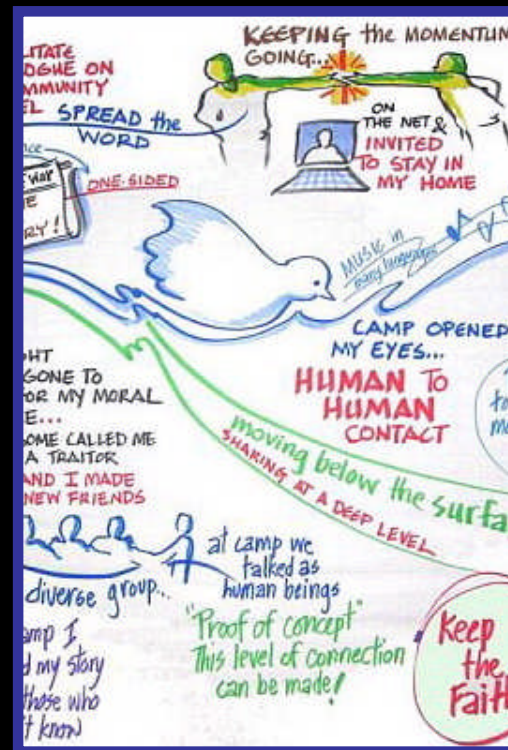 KEEPING the MOMENTUM
GOING...
ITATE
OGUE ON
MMUNITY
EL
SPREAD the
WORD
ON
THE NET &
INVITED
TO STAY IN
MY HOME
nce
WAY
E
RY!
ONE-SIDED
MUSIC in
many languages
CAMP OPENED
MY EYES...
HUMAN TO
HUMAN
CONTACT
GHT
GONE TO
OR MY MORAL
E...
OME CALLED ME
A TRAITOR
AND I MADE
NEW FRIENDS
moving below the surfa
SHARING AT A DEEP LEVEL
diverse group...
at camp we
talked as
human beings
"Proof of concept"
This level of connection
can be made!
amp I
d my story
those who
't know
Keep
the
Faith